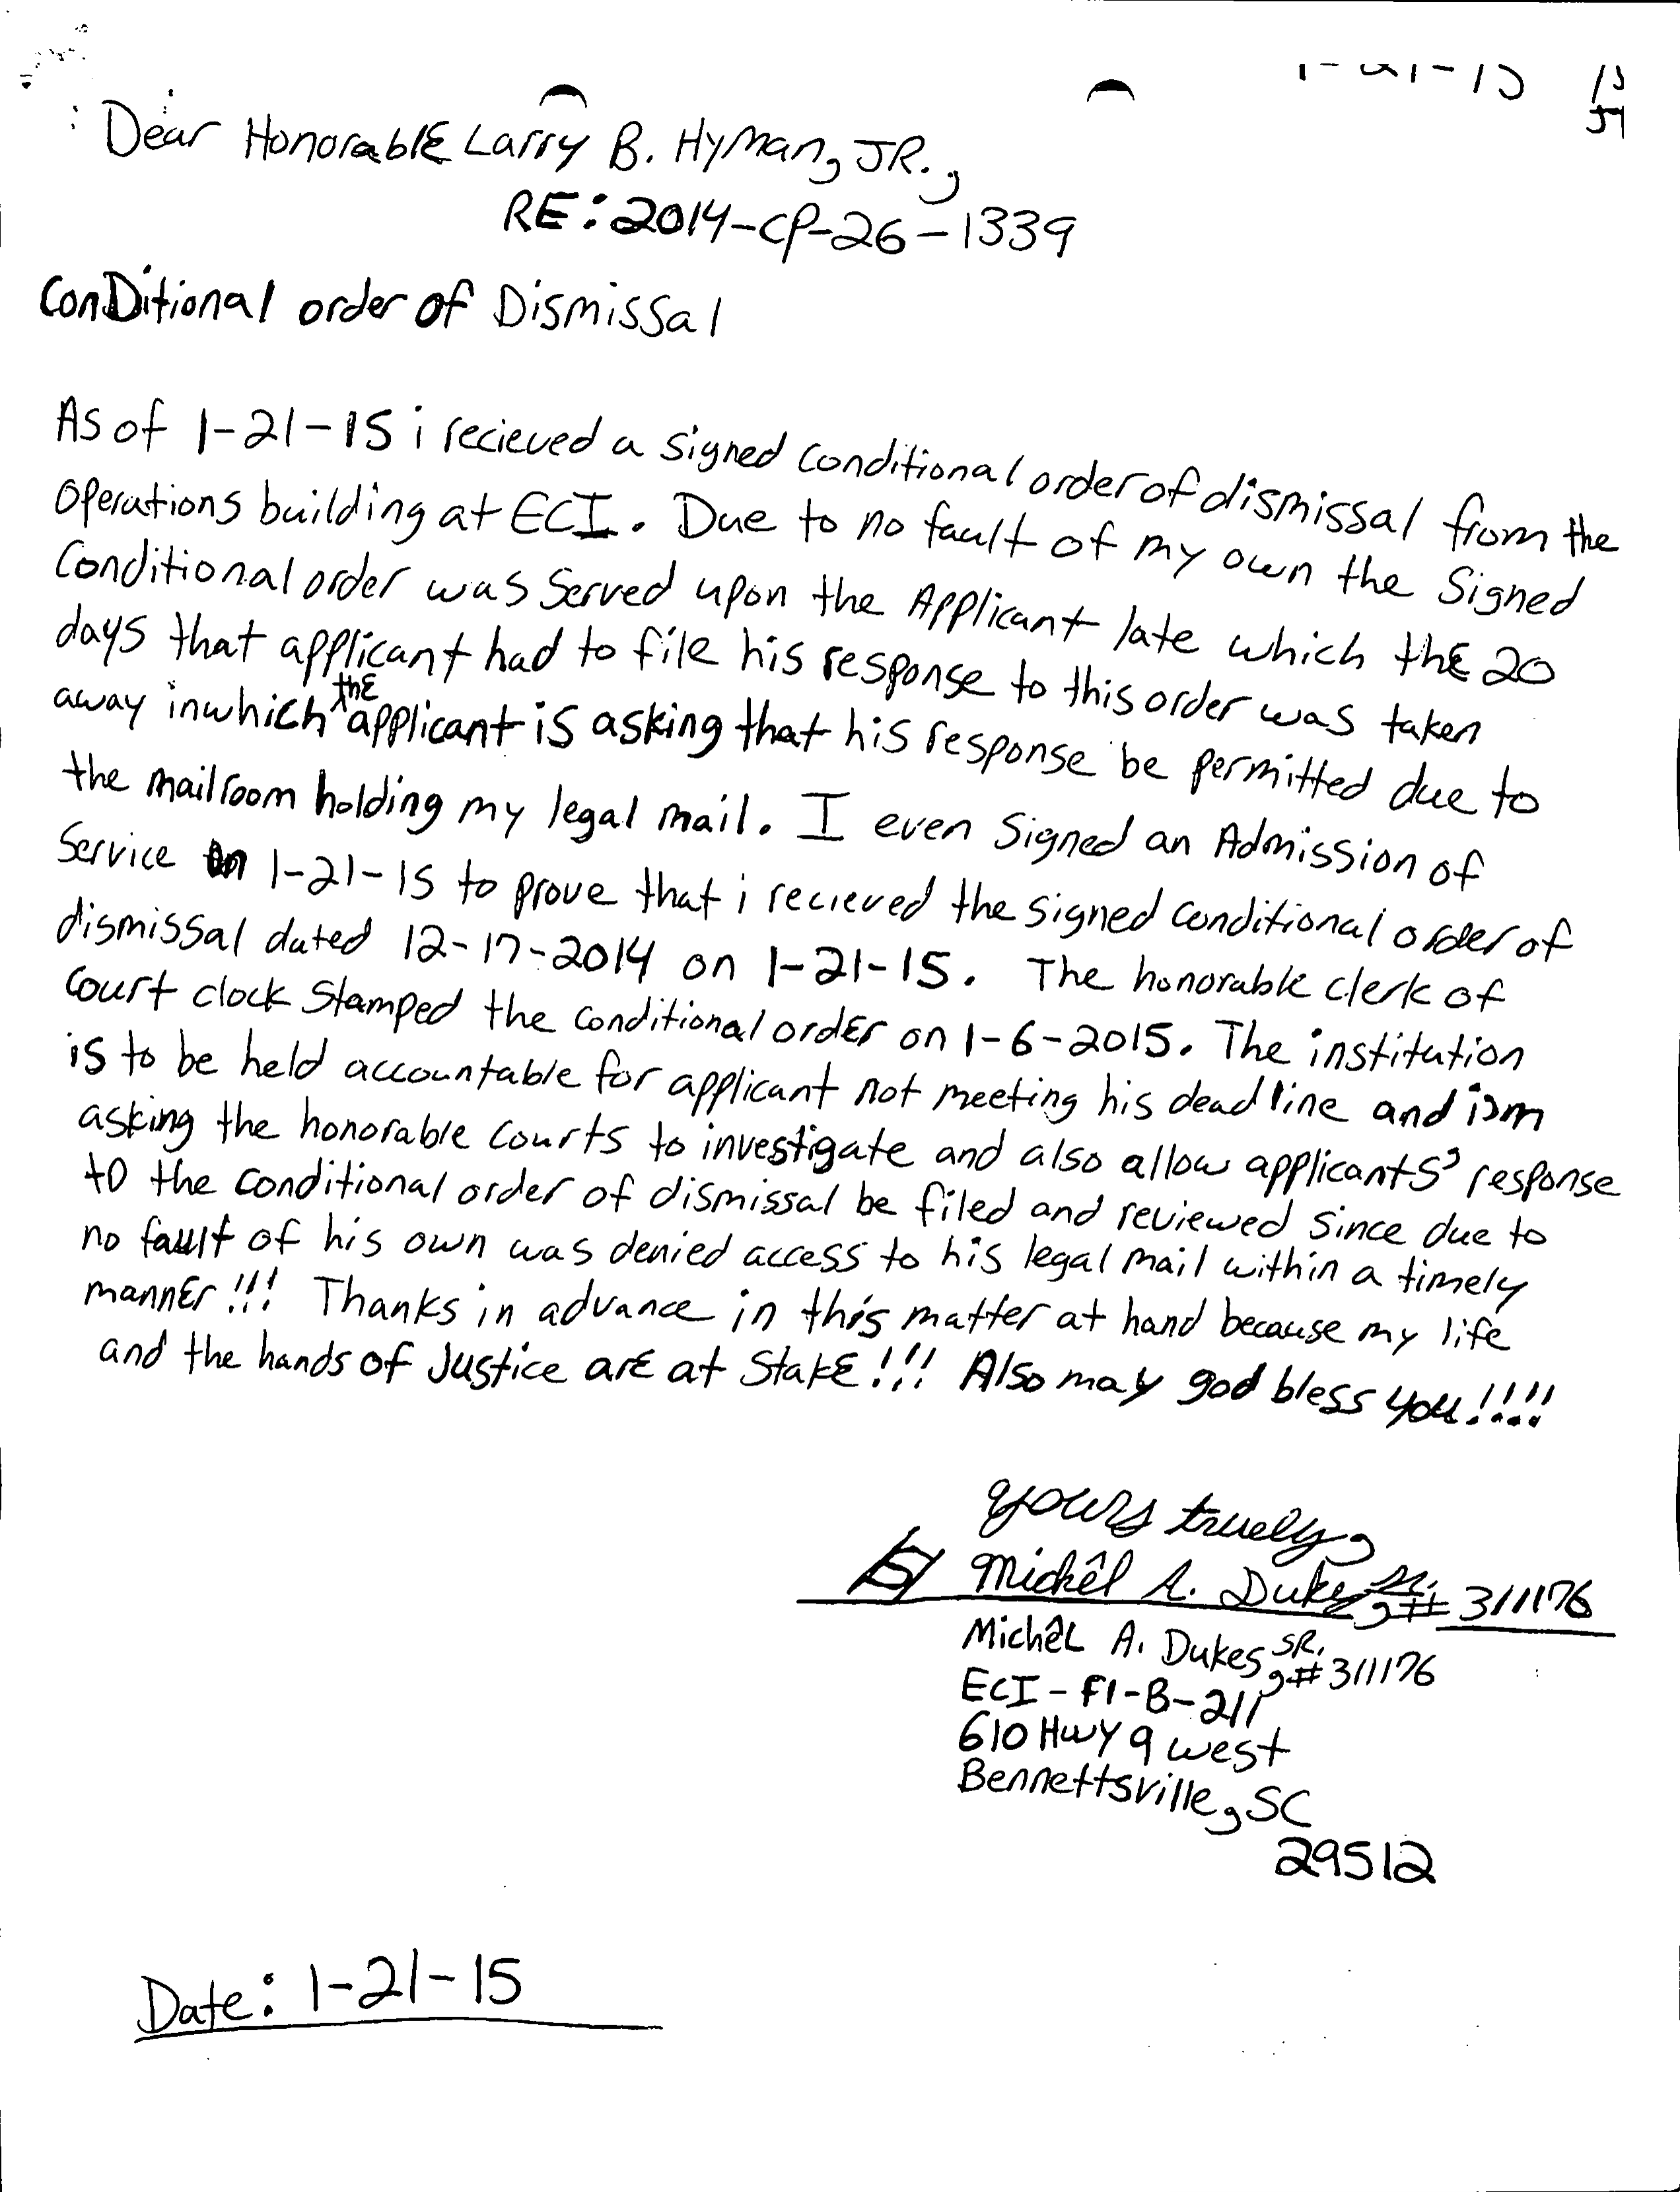 1-21-15
Dear Honorable Larry B. Hyman, JR.,
RE: 2014-CP-26-1339
Conditional order of Dismissal
As of 1-21-15 i recieved a signed conditional order of dismissal from the
Operations building at ECI. Due to no fault of my own the Signed
Conditional order was Served upon the Applicant late which the 20
days that applicant had to file his response to this order was taken
away inwhich the applicant is asking that his response be permitted due to
the mailroom holding my legal mail. I even Signed an Admission of
Service on 1-21-15 to prove that i recieved the signed conditional order of
dismissal dated 12-17-2014 on 1-21-15. The honorable clerk of
Court clock Stamped the conditional order on 1-6-2015. The institution
is to be held accountable for applicant not meeting his deadline and i'm
asking the honorable courts to investigate and also allow applicants' response
to the conditional order of dismissal be filed and reviewed since due to
no fault of his own was denied access to his legal mail within a timely
manner!!! Thanks in advance in this matter at hand because my life
and the hands of Justice are at Stake!!! Also may god bless you!!!!
yours truely,
Michêl A. Dukes, Sr. #311176
Michêl A. Dukes, SR. #311176
ECI-F1-B-211
610 Hwy 9 west
Bennettsville, SC
29512
Date: 1-21-15